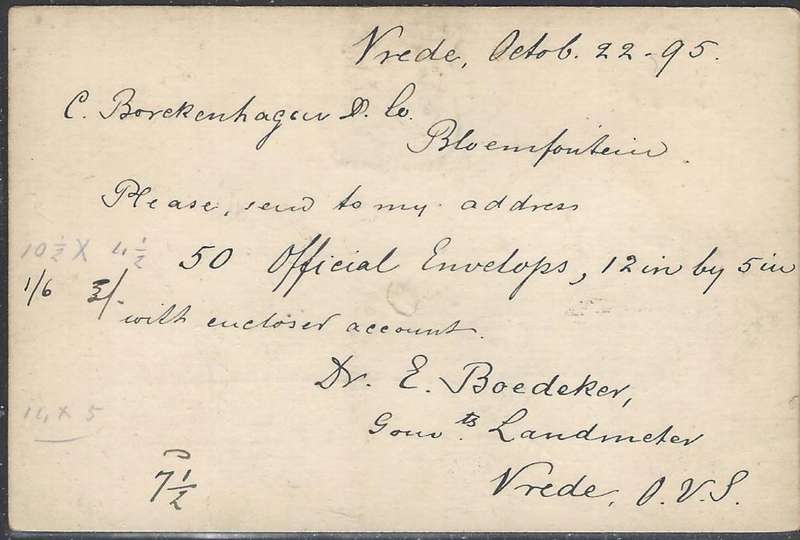 Vrede, Octob. 22-95.
C. Borckenhagen & Co.
Bloemfontein
Please, send to my address
10 1/2 X 4 1/2 50 Official Envelops, 12 in by 5 in
1/6 3/-
with encloser account.
Dr. E. Boedeker,
Gouv.ts Landmeter
Vrede, O.V.S.
x 5
7 1/2